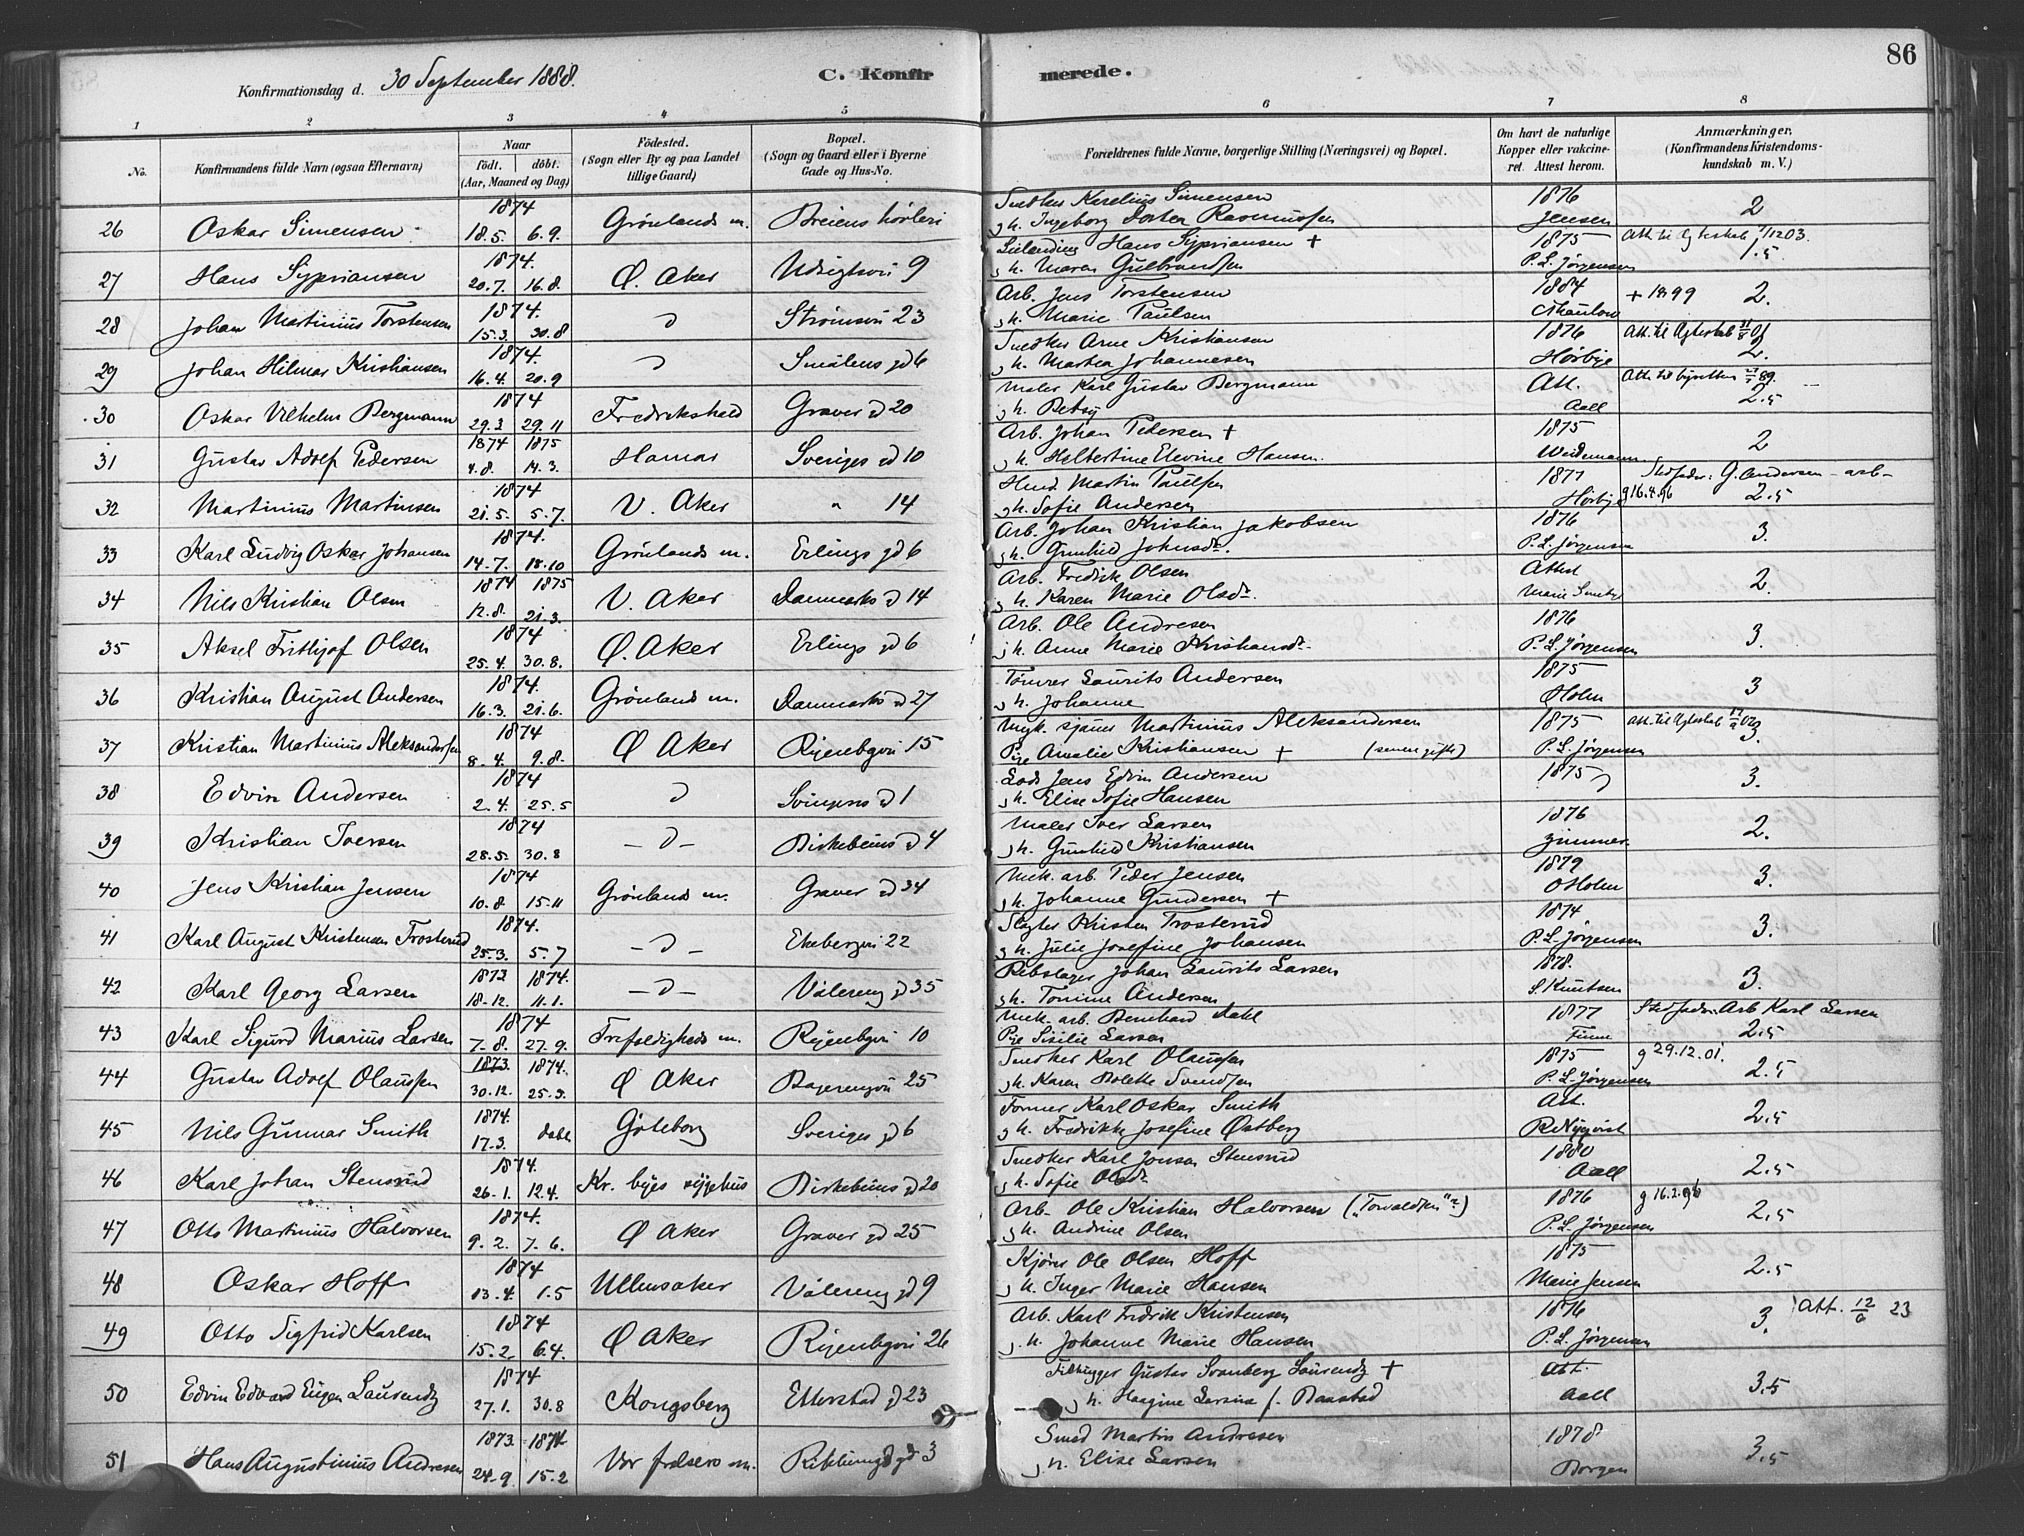 86
Konfirmationsdag d. 30 September 1888.
C. Konfirmerede.
1 2 3 4 5 6 7 8
No.
Konfirmandens fulde Navn (ogsaa Efternavn)
Naar
født. døbt.
(Aar, Maaned og Dag)
Födested.
(Sogn eller By og paa Landet tillige Gaard)
Bopæl.
(Sogn og Gaard eller i Byerne Gade og Hus-No.
Forældrenes fulde Navne, borgerlige Stilling (Næringsvei) og Bopæl.
Om havt de naturlige Kopper eller vakcineret. Attest herom.
Anmærkninger.
(Konfirmandens Kristendomskundskab m. V.)
26 Oskar Simensen 1874 18.5. 6.9. Grönlands m. Snedker Karelius Simensen 1876 2
g. h. Ingeborg Dortea Rasmussen Jensen
27 Hans Syprriansen 1874. 20.7. 16.8. Ø. Aker Udsigtsvei 9 Hans Sypriansen + 1875 1.5
g. h. Maren Gulbrandsen P. L. Jørgensen
28 Johan Martinius Torstensen 1874. 15.3. 30.8 d Strömsvei 23 Arb. Jens Torstensen 1884 + 1899 2.
g. h. Marie Paulsen
29 Johan Hilmar Kristiansen 1874. 16.4. 20.9 d Smålens gd 6 Snedker Arne Kristiansen 1876 2.
g. h. Martea Johannesen Hørbye
30 Oskar Vilhelm Bergmann 1874 29.3 29.11 Fredrikshald Graver gd 20 Maler Karl Gustav Bergmann Att. 2.5
g. h. Betsy Aall
31 Gustav Adolf Pedersen 1874 1875 4.8. 14.3. Hamar Sveriges gd 10 Arb. Johan Pedersen + 1875 2
g. h. Helbertine Elevine Hansen. Weidemann
32 Martinius Martinsen 1874 21.5. 5.7. V. Aker " 14 Martin Paulsen 1877 Stedfader: G. Andersen - arb-
g. h. Sofie Andersen Hørbye g 16.4.96 2.5
33 Karl Ludvig Oskar Johansen 1874. 14.7. 18.10 Grönlands m. Erlings gd 6 Arb. Johan Kristian Jakobsen 1876 3.
g. h. Gunhild Johnsdr. P. L. Jørgensen
34 Nils Kristian Olsen 1874 1875 12.8. 21.3. V. Aker Danmarks gd 14 Arb. Fredrik Olsen Attest 2.
g. h. Karen Marie Olsdr.
35 Aksel Frithjof Olsen 1874 25.4. 30.8. Ø. Aker Erlings gd 6 Arb. Ole Andresen 1876 3.
g. h. Anne Marie Kristiansdr. P. L. Jørgensen
36 Kristian August Andersen 1874. 16.3. 21.6. Grönland m. Danmarks gd 27 Tömrer Laurits Andersen 1875 3
g. h. Johanne Holm
37 Kristian Martinius Aleksandersen 1874 8.4. 9.8. Ø Aker Ryenbgvei 15 Martinius Aleksandersen 1875 3.
Pige Amalie Kristiansen + (senere gift) P. L. Jørgensen
38 Edvin Andersen 1874 2.4. 25.5 d Svingens gd 1 Lods Jens Edvin Andersen 1875 3.
g. h. Elise Sofie Hansen
39 Kristian Iversen 1874 28.5. 30.8 - d - Birkebeins gd 4 Maler Iver Larsen 1876 2.
g. h. Gunhild Kristiansen Zimmer
40 Jens Kristian Jensen 1874 10.8 15.11 Grönlands m. Graver gd 34 Mek. arb. Peder Jensen 1879 3.
g. h. Johanne Gundersen + O Holm
41 Karl August Kristensen Trosterud 1874. 25.3. 5.7 - d - Ekebergvei 22 Slagter Kristen Trosterud 1874 3.
g. h. Julie Josefine Johansen P. L. Jørgensen
42 Karl Georg Larsen 1873 1874. 18.12. 11.1. - d - Vålereng gd 35 Rebslager Johan Laurits Larsen 1878. 3.
g. h. Tomine Andersen S. Knutsen
43 Karl Sigurd Marius Larsen 1874 7.8. 27.9. Trefoldigheds m. Ryenbgvei 10 Mek. arb. Bernhard Dahl 1877 Stedfader: Arb Karl Larsen
Pige Sisilie Larsen Finne 2.5
44 Gustav Adolf Olaussen 1873. 1874. 30.12. 25.3. Ø Aker Bøgerengvei 25 Snedker Karl Olaussen 1875 g 29.12.01.
g. h. Karen Bolette Svendsen P. L. Jørgensen 2.5
45 Nils Gunnar Smith 1874. 17.3. Göteborg Sveriges gd 6 Former Karl Oskar Smith Att. 2.5
g. h. Fredrikke Josefine Østberg
46 Karl Johan Stensrud 1874. 26.1. 12.4. Kr. byes sygehus Birkebeins gd 20 Snedker Karl Jonsen Stensrud 1880 2.5
g. h. Sofie Olsdr. Aall
47 Otto Martinius Halvorsen 1874. 9.2. 7.6. Ø Aker Graver gd 25 Arb. Ole Kristian Halvorsen ("Torvaldsen"?) 1876 g 16.2.96 2.5
g. h. Andrine Olsen P. L. Jørgensen
48 Oskar Hoff 1874 13.4. 1.5 Ullensaker Vålereng gd 9 Kjörer Ole Olsen Hoff 1875 2.5
g. h. Inger Marie Hansen Marie Jensen
49 Otto Sigfrid Karlsen 1874 15.2. 6.4. Ø Aker Ryenbgvei 26 Arb. Karl Fredrik Kristensen 1876 3. Att. 12/6 23
g. h. Johanne Marie Hansen P. L. Jørgensen
50 Edvin Edvard Eugen Laurendz 1874 27.1. 30.8 Kongsberg Etterstad gd 23 Filhugger Gustav Svanberg Laurendz + Att. 3.5
g. h. Hasine Larsine f. Baastad Aall
51 Hans Augustinius Andresen 1873. 1874 24.9. 15.2 Vor frelsers m. gd 3 Smed Martin Andresen 1878 3.5
g. h. Elise Larsen Borgen